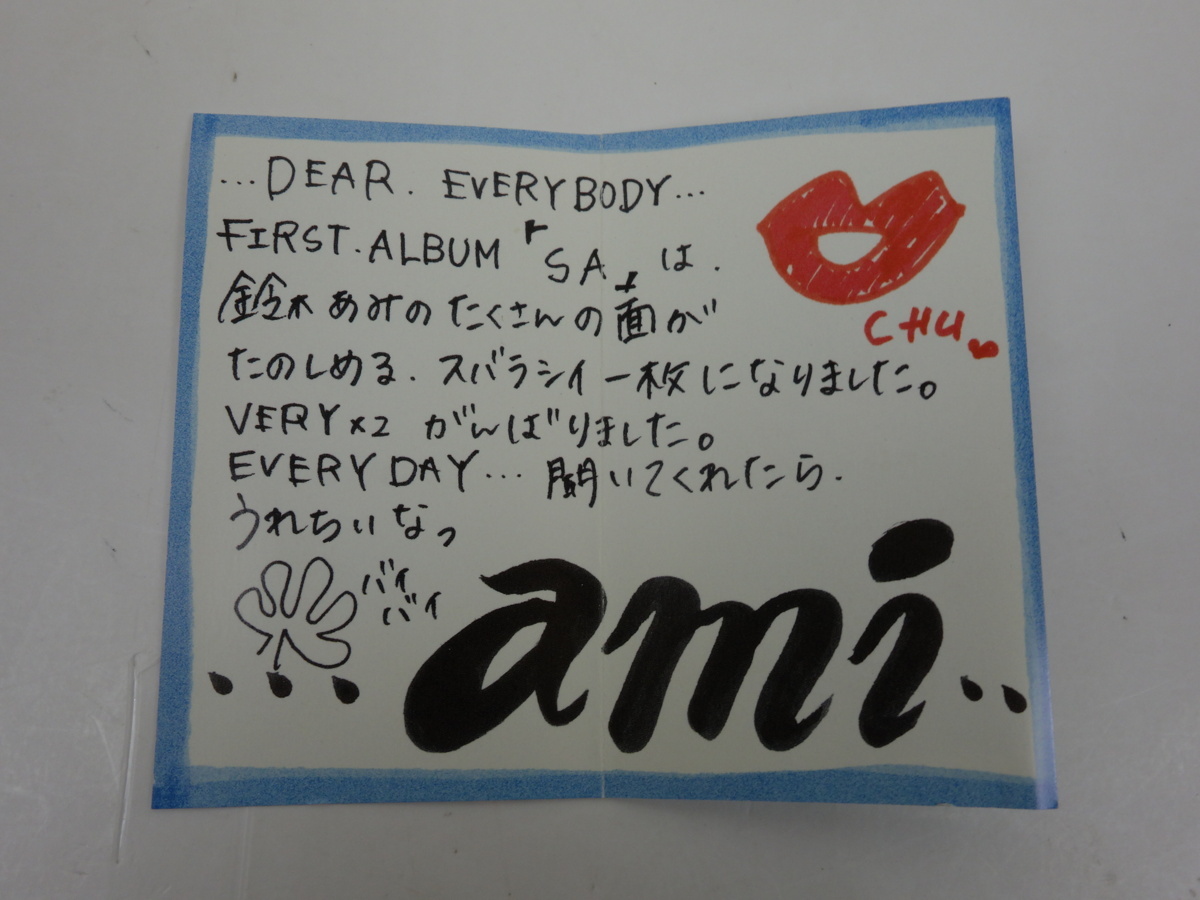 ...DEAR. EVERYBODY...
FIRST.ALBUM『SA』は.
鈴木あみのたくさんの面が
たのしめる. スバラシイ一枚になりました。
VERY×2 がんばりました。
EVERYDAY... 聞いてくれたら.
うれちいなっ
バイ
バイ
...ami..
CHU♥